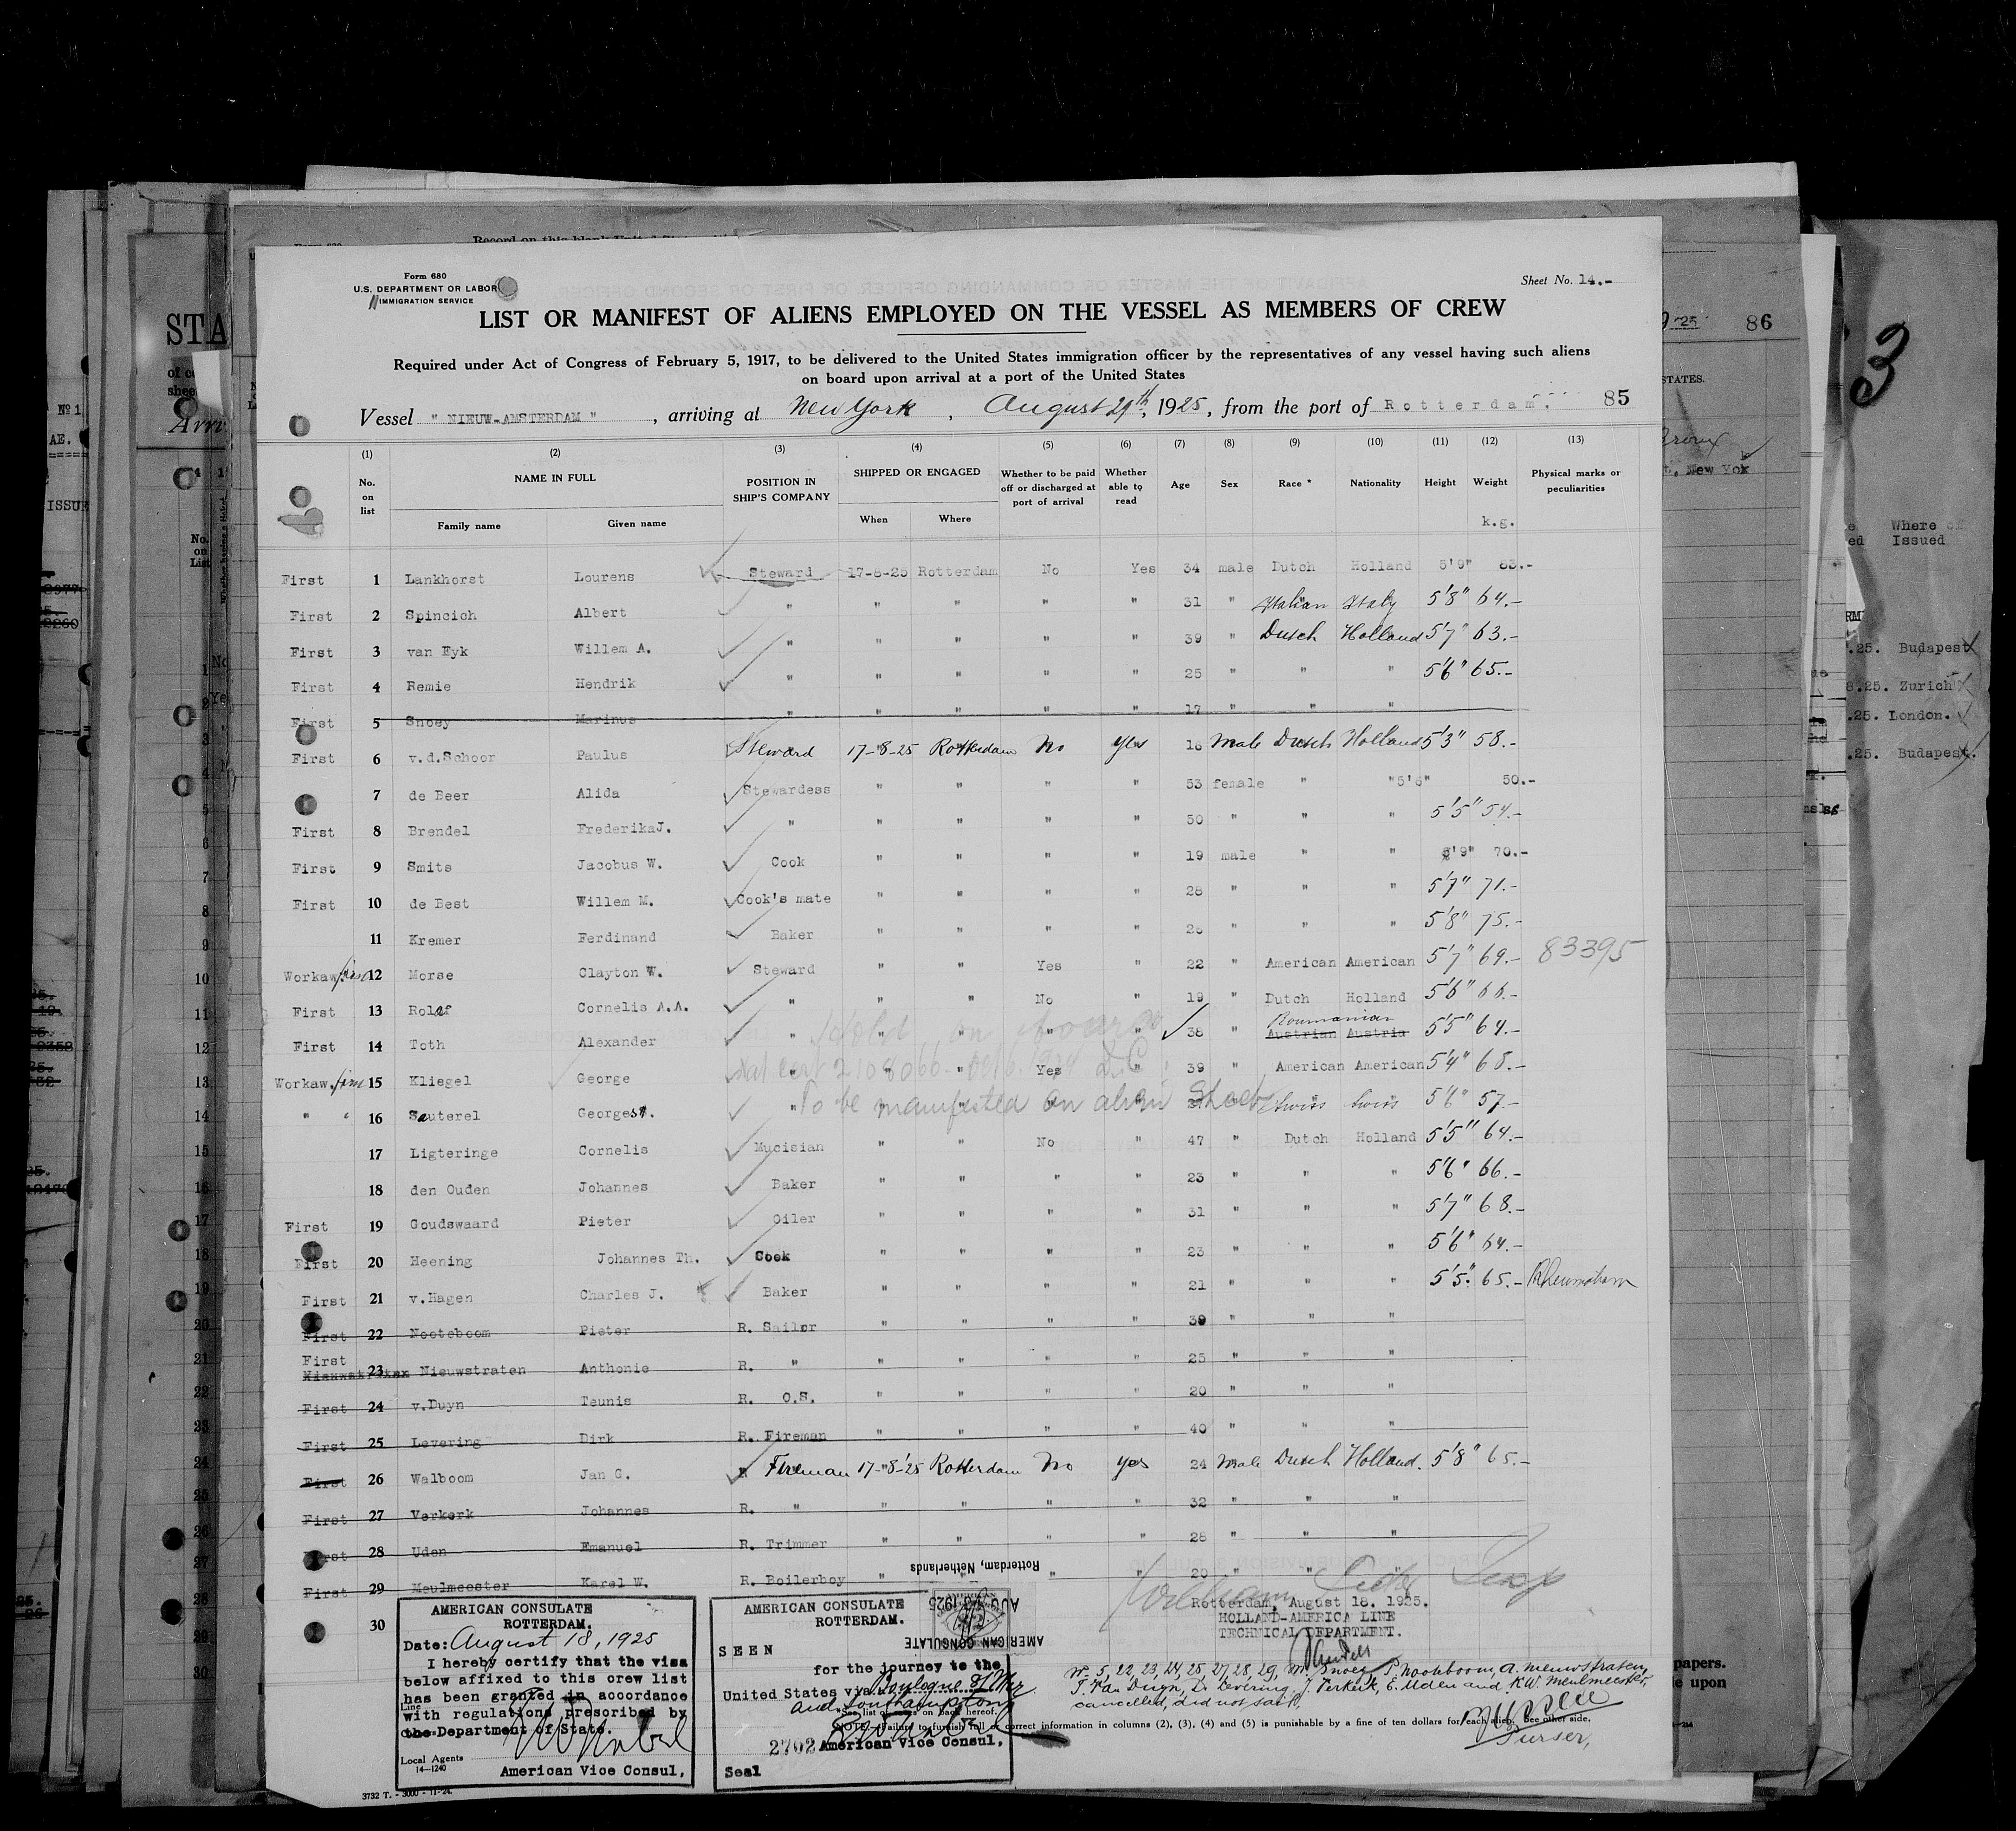 Form 680
U.S. DEPARTMENT OF LABOR
IMMIGRATION SERVICE
Sheet No. 14.-
LIST OR MANIFEST OF ALIENS EMPLOYED ON THE VESSEL AS MEMBERS OF CREW
Required under Act of Congress of February 5, 1917, to be delivered to the United States immigration officer by the representatives of any vessel having such aliens
on board upon arrival at a port of the United States
Vessel "NIEUW-AMSTERDAM", arriving at New York, August 29th, 1925, from the port of Rotterdam. 85
(1) (2) (3) (4) (5) (6) (7) (8) (9) (10) (11) (12) (13)
No. on list NAME IN FULL POSITION IN SHIP'S COMPANY SHIPPED OR ENGAGED Whether to be paid off or discharged at port of arrival Whether able to read Age Sex Race * Nationality Height Weight Physical marks or peculiarities
Family name Given name When Where k.g.
First 1 Lankhorst Lourens Steward 17-8-25 Rotterdam No Yes 34 male Dutch Holland 5'9" 83.-
First 2 Spincich Albert " " " " " 31 " Italian Italy 5'8" 64.-
First 3 van Eyk Willem A. " " " " " 39 " Dutch Holland 5'7" 63.-
First 4 Remie Hendrik " " " " " 25 " " " 5'6" 65.-
First 5 Snoey Marinus " " " " " 17 " " "
First 6 v.d.Schoor Paulus Steward 17-8-25 Rotterdam No Yes 18 Male Dutch Holland 5'3" 58.-
7 de Beer Alida Stewardess " " " " 53 female " " 5'6" 50.-
First 8 Brendel FrederikaJ. " " " " " 50 " " " 5'5" 54.-
First 9 Smits Jacobus W. Cook " " " " 19 male " " 5'9" 70.-
First 10 de Best Willem M. Cook's mate " " " " 28 " " " 5'7" 71.-
11 Kremer Ferdinand Baker " " " " 26 " " " 5'8" 75.-
Workaw. first 12 Morse Clayton W. Steward " " Yes " 22 " American American 5'7" 69.- 83395
First 13 Rolaf Cornelis A.A. " " " No " 19 " Dutch Holland 5'6" 66.-
Held on board
Roumanian
First 14 Toth Alexander " " " " " 38 " Austrian Austria 5'5" 64.-
Workaw. first 15 Kliegel George " " " Yes " 39 " American American 5'4" 68.-
Nat cert 2108066
To be manifested on alien sheet
" " 16 Sauterel Georges " " " " " " Swiss Swiss 5'6" 57.-
17 Ligteringe Cornelis Mucisian " " No " 47 " Dutch Holland 5'5" 64.-
18 den Ouden Johannes Baker " " " " 23 " " " 5'6" 66.-
First 19 Goudswaard Pieter Oiler " " " " 31 " " " 5'7" 68.-
First 20 Heening Johannes Th. Cook " " " " 23 " " " 5'6" 64.-
First 21 v.Hagen Charles J. Baker " " " " 21 " " " 5'5". 65.- Rheumatism
First 22 Nooteboom Pieter R. Sailor " " " " 39 " " "
First 23 Nieuwstraten Anthonie R. " " " " " 25 " " "
First 24 v.Duyn Teunis R. O.S. " " " " 20 " " "
First 25 Levering Dirk R. Fireman " " " " 40 " " "
First 26 Walboom Jan G. R Fireman 17-8-'25 Rotterdam No Yes 24 Male Dutch Holland. 5'8" 65.-
First 27 Verkerk Johannes R. " " " " " 32 " " "
First 28 Uden Emanuel R. Trimmer " " " " 28 " " "
First 29 Meulmeester Karel W. R. Boilerboy " " " " 20 " " "
30
Rotterdam, Netherlands
AUG 18 1925
AMERICAN CONSULATE
AMERICAN CONSULATE
ROTTERDAM.
Date: August 18, 1925
I hereby certify that the visa
below affixed to this crew list
has been granted in accordance
with regulations prescribed by
the Department of State.
American Vice Consul.
Local Agents
14—1240
3732 T. - 3000 - 11-24.
AMERICAN CONSULATE
ROTTERDAM.
SEEN
for the journey to the
United States via Boulogne s/Mer
and Southampton
2702 American Vice Consul.
Seal
See list of races on back hereof.
NOTE.—Failure to furnish full or correct information in columns (2), (3), (4) and (5) is punishable by a fine of ten dollars for each alien. See other side.
Rotterdam, August 18. 1925.
HOLLAND-AMERICA LINE
TECHNICAL DEPARTMENT.
No 5, 22, 23, 24, 25, 27, 28, 29, M. Snoey, P. Nooteboom, A. Nieuwstraten,
T. van Duyn, D. Levering, J. Verkerk, E. Uden and K.W. Meulmeester,
cancelled, did not sail.
Purser,
86
STATES.
Bronx
New York
3
Where of
Issued
.25. Budapest
8.25. Zurich
.25. London.
.25. Budapest.
papers.
upon
STA
Nº1
ISSUE